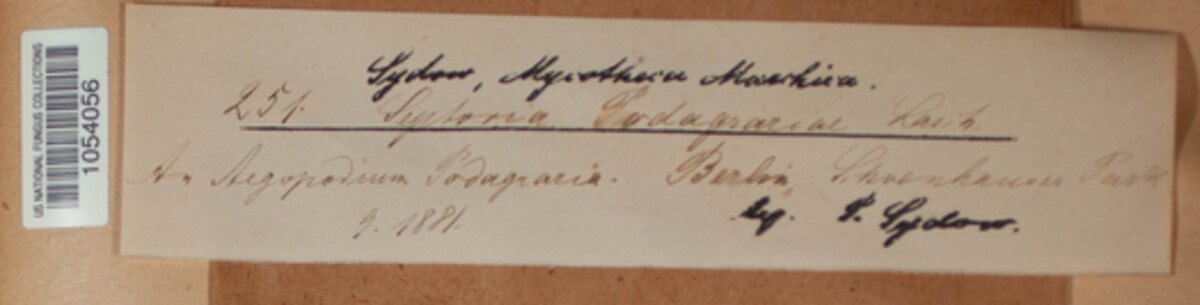 US NATIONAL FUNGUS COLLECTIONS
1054056
Sydow, Mycotheca Marchica.
251. Septoria Podagrariae Lasch.
An Aegopodium Podagraria. Berlin, Schoenhauser Park
9. 1881.
leg. P. Sydow.